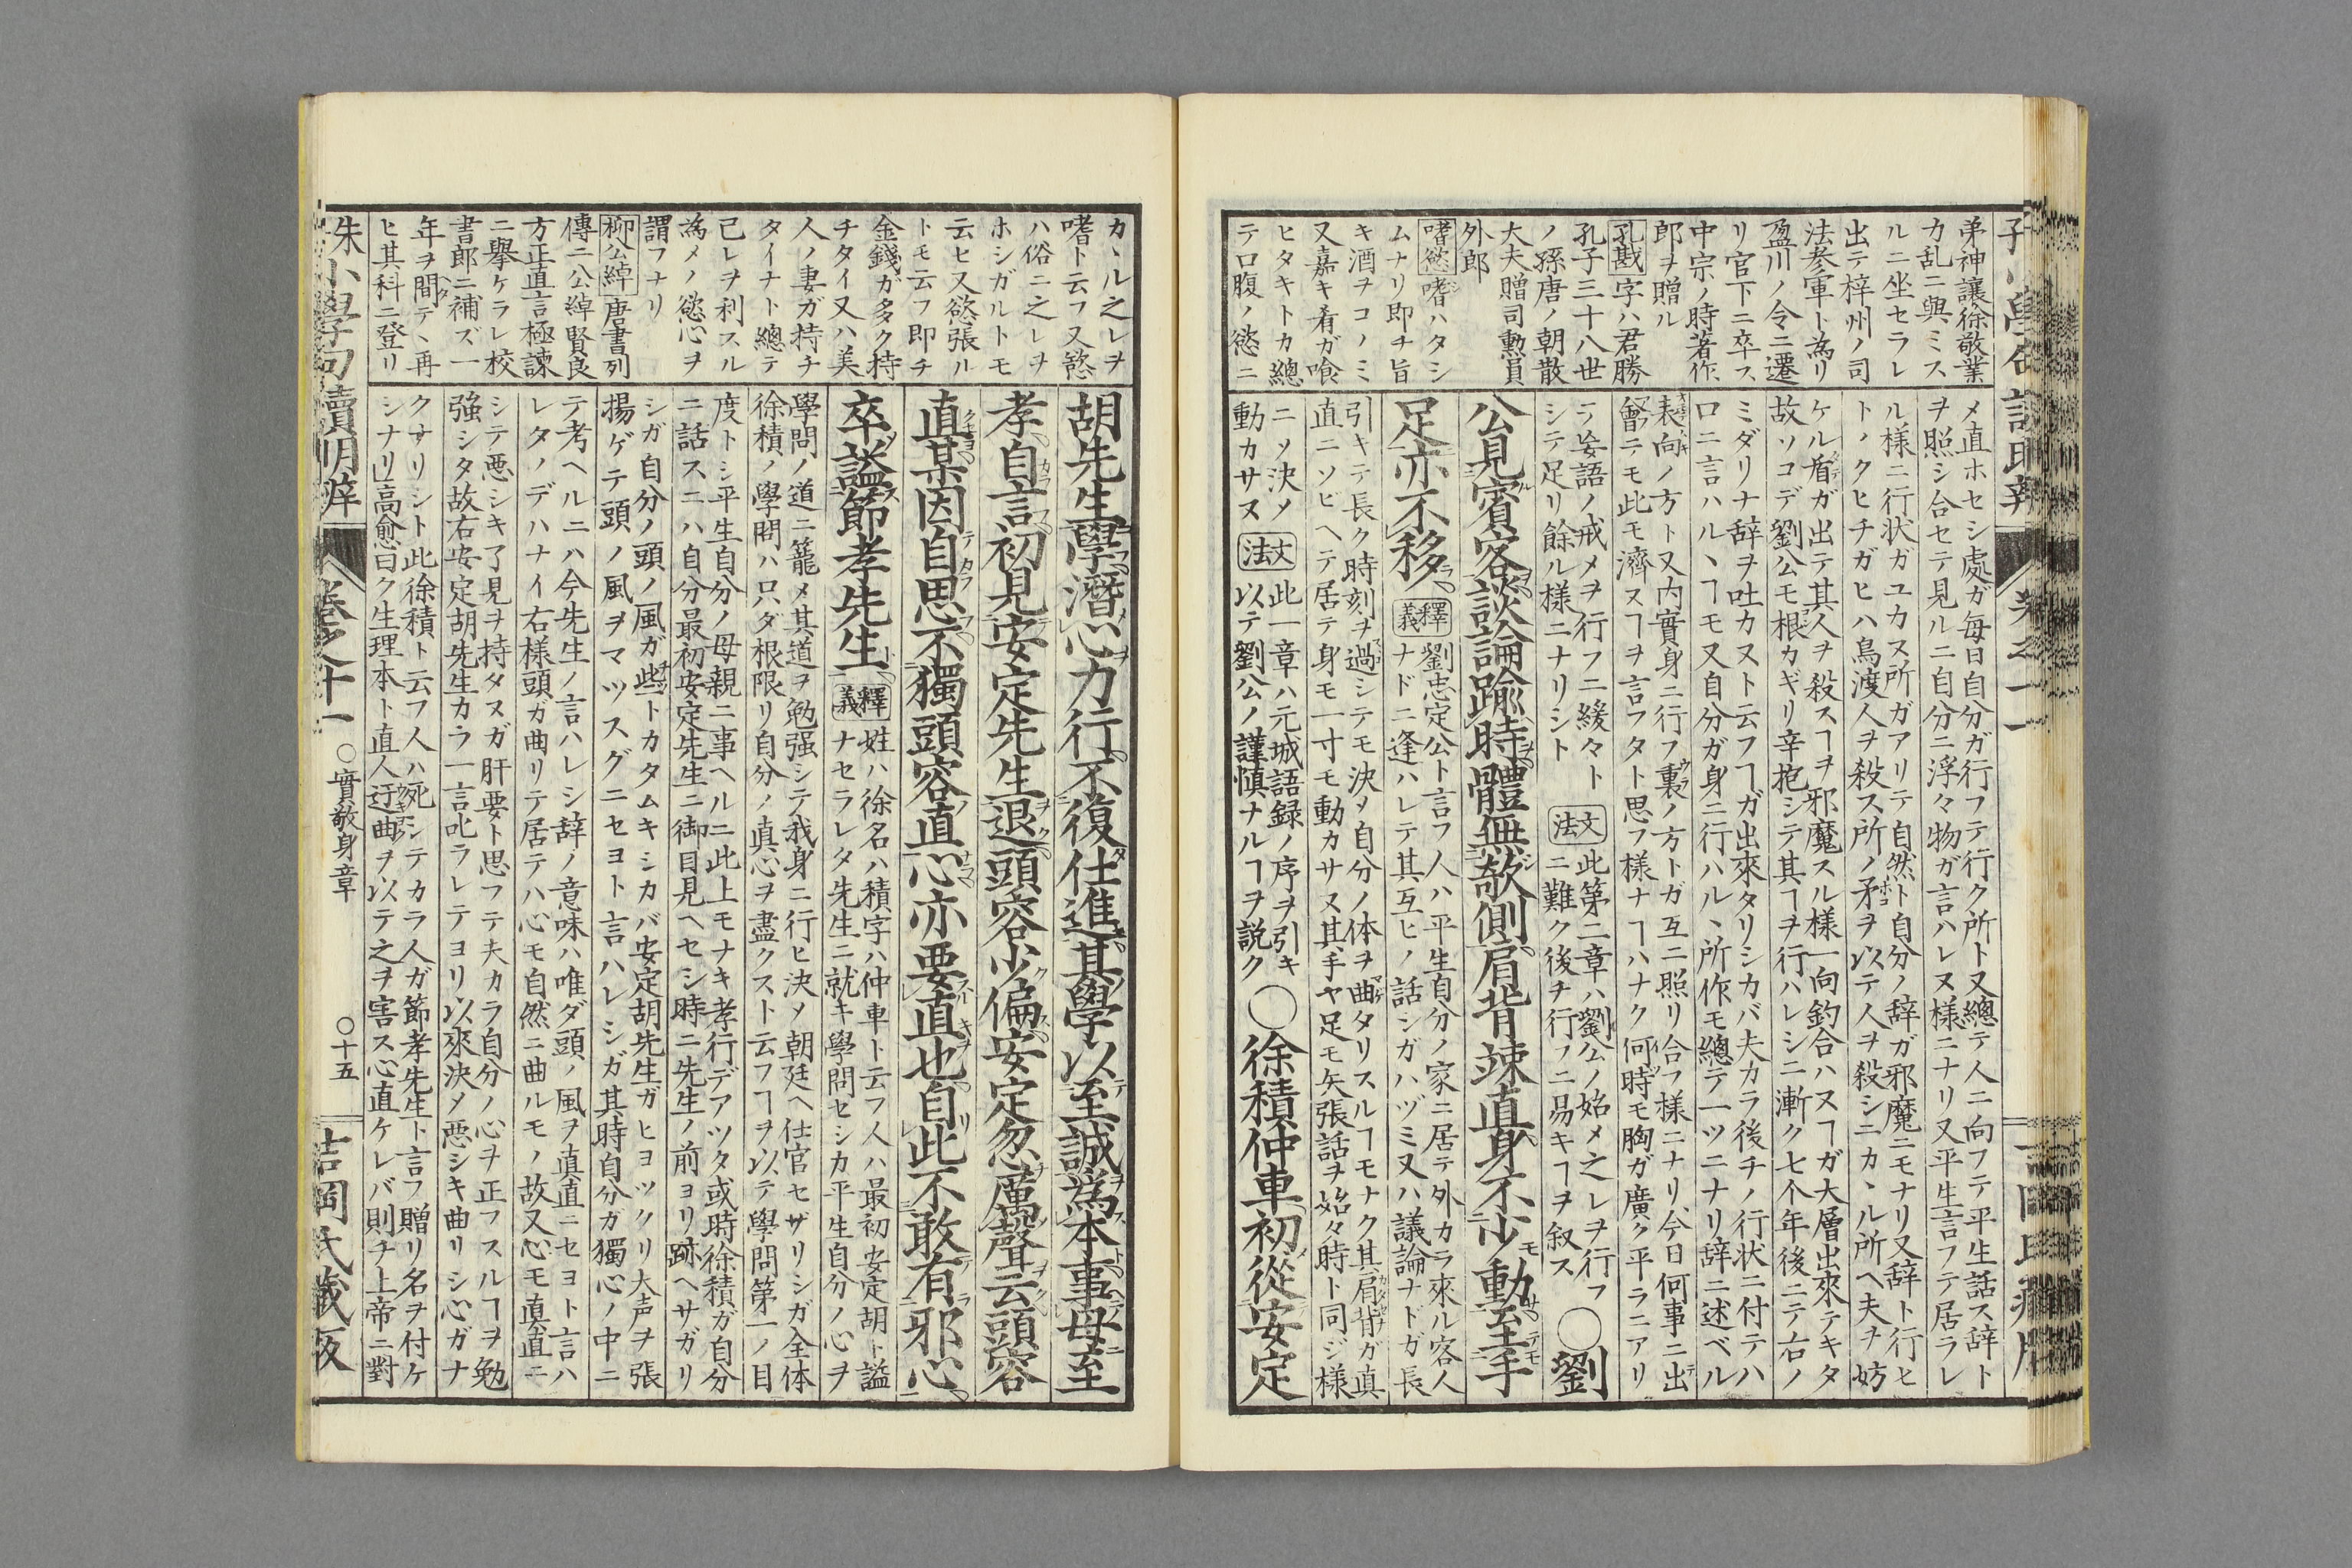 弟神讓徐敬業
カ乱ニ與ミス
ルニ坐セラレ
出テ梓州ノ司
法參軍ト為リ
盈川ノ令ニ遷
リ官下ニ卒ス
中宗ノ時著作
郎ヲ贈ル
孔戡字ハ君勝
孔子三十八世
ノ孫唐ノ朝散
大夫贈司勲員
外郎
嗜慾嗜ハタシ
ムナリ即チ旨
キ酒ヲコノミ
又嘉キ肴ガ喰
ヒタキトカ總
テロ腹ノ慾ニ
メ直ホセシ處ガ毎日自分ガ行フテ行ク所ト又總テ人ニ向フテ平生話ス辞ト
ヲ照シ合セテ見ルニ自分ニ浮々物ガ言ハレヌ様ニナリ又平生言フテ居ラレ
ル様ニ行状ガユカヌ所ガアリテ自然ト自分ノ辞ガ邪魔ニモナリ又辞ト行ヒ
トノクヒチガヒハ鳥渡人ヲ殺ス所ノ矛ヲ以テ人ヲ殺シニカヽル所ヘ夫ヲ妨
ケル盾ガ出テ其人ヲ殺スヿヲ邪魔スル様一向釣合ハヌヿガ大層出來テキタ
故ソコデ劉公モ根カギリ辛抱シテ其ヿヲ行ハレシニ漸ク七个年後ニテ右ノ
ミダリナ辞ヲ吐カヌト云フヿガ出來タリシカバ夫カラ後チノ行状ニ付テハ
口ニ言ハルヽヿモ又自分ガ身ニ行ハルヽ所作モ總テ一ツニナリ辞ニ述ベル
表向ノ方ト又内實身ニ行フ裏ノ方トガ互ニ照リ合フ様ニナリ今日何事ニ出
會テモ此モ濟スヿヲ言フタト思フ様ナヿハナク何時モ胸ガ廣ク平ラニアリ
テ妄語ノ戒メヲ行フニ緩々ト
シテ足リ餘ル様ニナリシト
文法
此第二章ハ劉公ノ始メ之レヲ行フ
ニ難ク後チ行フニ易キヿヲ叙ス
〇劉
公見賓客談論踰時體無欹側肩背竦直身不少動至手
足亦不移
釋義
劉忠定公ト言フ人ハ平生自分ノ家ニ居テ外カラ來ル客人
ナドニ逢ハレテ其互ヒノ話シガハヅミ又ハ議論ナドガ長
引キテ長ク時刻ヲ過シテモ決メ自分ノ体ヲ曲タリスルヿモナク其肩背ガ真
直ニソビヘテ居テ身モ一寸モ動カサヌ其手ヤ足モ矢張話ヲ始タ時ト同ジ様
ニソ決メ
動カサヌ
文法
此一章ハ元城語録ノ序ヲ引キ
以テ劉公ノ謹慎ナルヿヲ説ク
〇徐積仲車初從安定
カヽル之レヲ
嗜ト云フ又慾
ハ俗ニ之レヲ
ホシガルトモ
云ヒ又慾張ル
トモ云フ即チ
金錢ガ多ク持
チタイ又ハ美
人ノ妻ガ持チ
タイナト總テ
己レヲ利スル
為メノ慾心ヲ
謂フナリ
柳公綽唐書列
傳ニ公綽賢良
方正直言極諫
ニ擧ケラレ校
書郎ニ補ズ一
年ヲ間テヽ再
ヒ其科ニ登リ
胡先生學潛心力行不復仕進其學以至誠為本事母至
孝自言初見安定先生退頭容少偏安定忽厲聲云頭容
直某因自思不獨頭容直心亦要直也自此不敢有邪心
卒謚節孝先生
釋義
姓ハ徐名ハ積字ハ仲車ト云フ人ハ最初安定胡ト謚
ナセラレタ先生ニ就キ學問セシカ平生自分ノ心ヲ
學問ノ道ニ籠メ其道ヲ勉强シテ我身ニ行ヒ決メ朝廷ヘ仕官セザリシガ全体
徐積ノ學問ハ只ダ根限リ自分ノ真心ヲ盡クスト云フヿヲ以テ學問第一ノ目
度トシ平生自分ノ母親ニ事ヘルニ此上モナキ孝行デアツタ或時徐積ガ自分
ニ話スニハ自分最初安定先生ニ御目見ヘセシ時ニ先生ノ前ヨリ跡ヘサガリ
シガ自分ノ頭ノ風ガ些トカタムキシカバ安定胡先生ガヒヨツクリ大声ヲ張
揚ゲテ頭ノ風ヲマツスグニセヨト言ハレシガ其時自分ガ獨心ノ中ニ
テ考ヘルニハ今先生ノ言ハレシ辞ノ意味ハ唯ダ頭ノ風ヲ真直ニセヨト言ハ
レタノデハナイ右様頭ガ曲リテ居テハ心モ自然ニ曲ルモノ故又心モ真直ニ
シテ悪シキ了見ヲ持タヌガ肝要ト思フテ夫カラ自分ノ心ヲ正フスルヿヲ勉
強シタ故右安定胡先生カラ一言叱ラレテヨリ以來決メ悪シキ曲リシ心ガナ
クナリシト此徐積ト云フ人ハ死シテカラ人ガ節孝先生ト言フ贈リ名ヲ付ケ
シナリ」高愈曰ク生理本ト直人迂曲ヲ以テ之ヲ害ス心直ケレバ則チ上帝ニ對
朱小學句讀明辨
巻之十一
〇實敬身章
〇十五
吉岡氏藏版